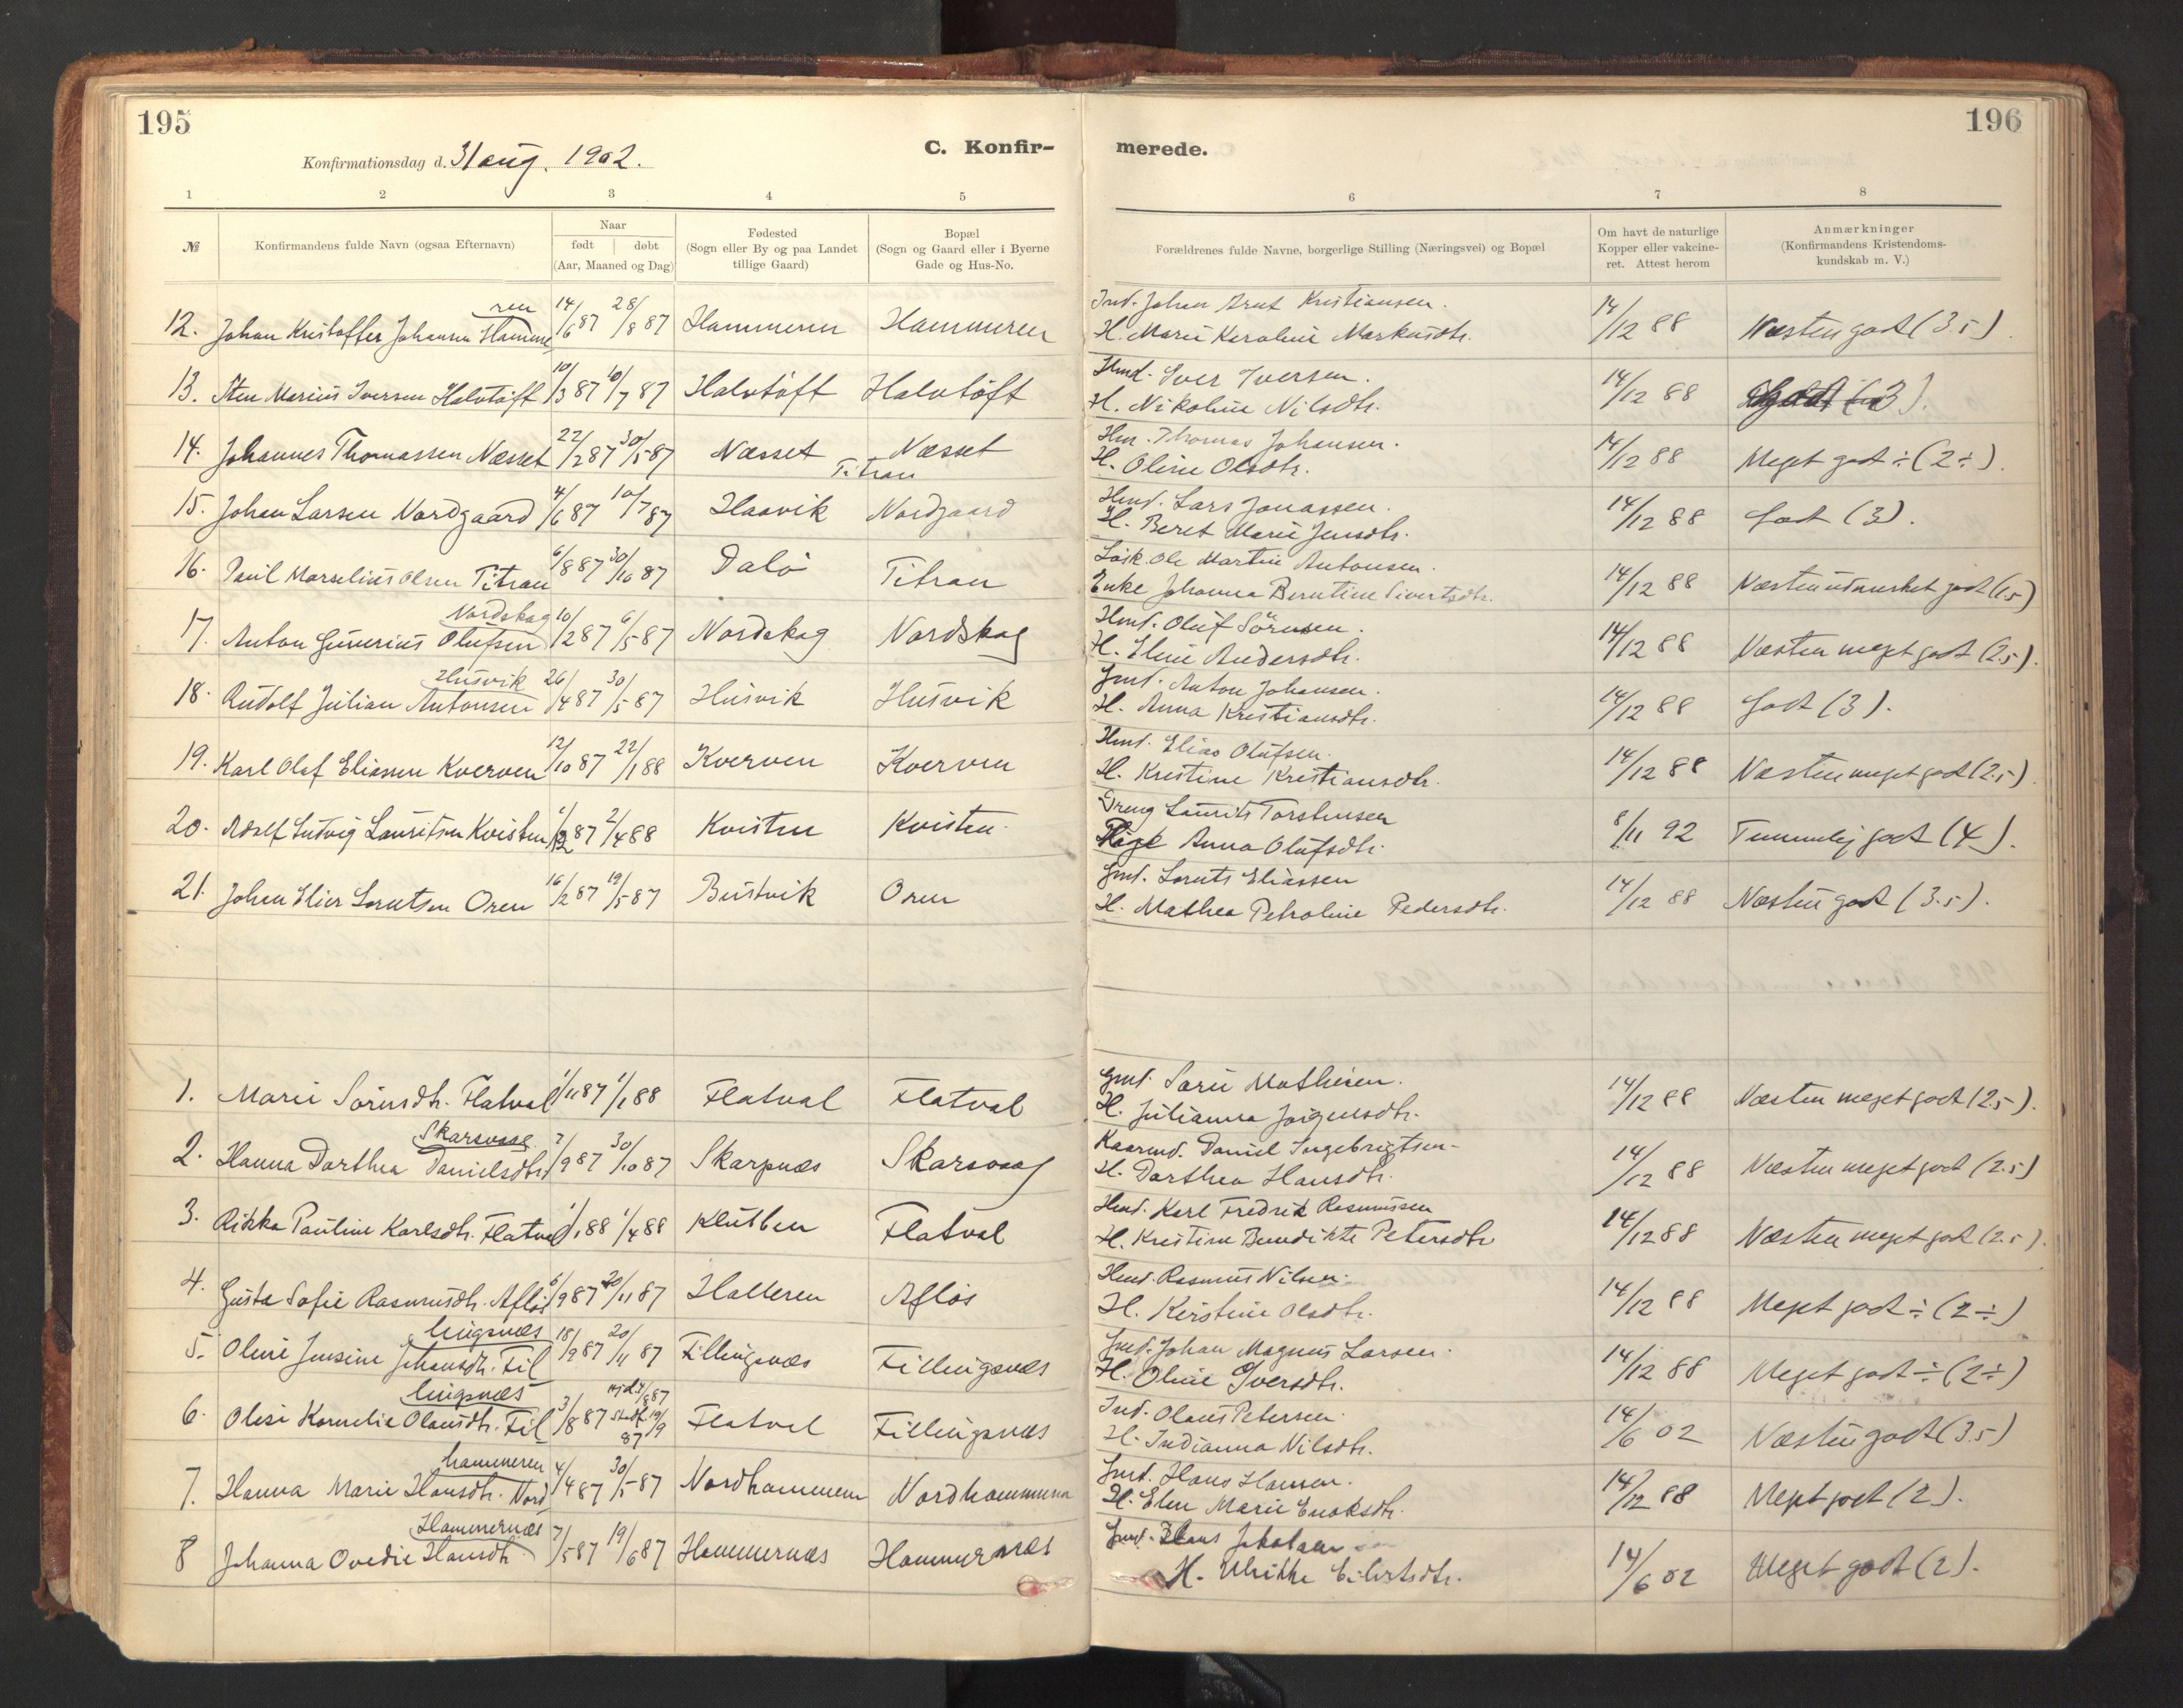 195
196
Konfirmationsdag d. 31 aug. 1902.
C. Konfir-
merede.
1 2 3 4 5 6 7 8
№
Konfirmandens fulde Navn (ogsaa Efternavn)
Naar
født døbt
(Aar, Maaned og Dag)
Fødested
(Sogn eller By og paa Landet
tillige Gaard)
Bopæl
(Sogn og Gaard eller i Byerne
Gade og Hus-No.
Forældrenes fulde Navne, borgerlige Stilling (Næringsvei) og Bopæl
Om havt de naturlige
Kopper eller vakcine-
ret. Attest herom
Anmærkninger
(Konfirmandens Kristendoms-
kundskab m. V.)
12. Johan Kristoffer Johansen Hammeren 14/6 87 28/8 87 Hammeren Hammeren
Ind. Johan Arnt Kristiansen.
H. Marie Karoline Markusdtr. 14/12 88 Næsten godt (3.5).
13. Sten Marius Iversen Halvtöft 10/3 87 10/7 87 Halvtöft Halvtöft
Hmd. Iver Iversen.
H. Nikoline Nilsdtr. 14/12 88 (3).
14. Johannes Thomassen Næsset 22/2 87 30/5 87 Næsset Næsset
Hm. Thomas Johansen.
H. Oline Olsdtr. 14/12 88 Meget godt ÷ (2÷).
Titran
15. Johan Larsen Nordgaard 4/6 87 10/7 87 Haavik Nordgaard
Hmd. Lars Jonassen.
H. Beret Marie Jensdtr. 14/12 88 Godt (3).
16. Paul Marselius Olsen Titran 6/8 87 30/10 87 Dalö Titran
Lösk. Ole Martin Antonsen.
Enke Johanna Berntine Sivertsdtr. 14/12 88 Næsten udmerket godt (1.5)
17. Anton Gunerius Olufsen Nordskag 10/2 87 6/5 87 Nordskag Nordskag
Hmd. Oluf Sörensen.
H. Eline Andersdtr. 14/12 88 Næsten meget godt (2.5).
18. Rudolf Julian Antonsen Husvik 26/4 87 30/5 87 Husvik Husvik
Gmd. Anton Johansen.
H. Anna Kristiansdtr. 14/12 88 Godt (3).
19. Karl Olaf Eliassen Kverven 12/10 87 22/1 88 Kverven Kverven
Hmd. Elias Olufsen.
H. Kristine Kristiansdtr. 14/12 88 Næsten meget godt (2.5)
20. Adolf Ludvig Lauritsen Kvisten 87 2/4 88 Kvisten Kvisten.
Dreng Laurits Torstensen
Pige Anna Olufsdtr. 8/11 92 Temmelig godt (4).
21. Johan Elier Lorntsen Oren 16/2 87 19/5 87 Bustvik Oren
Gmd. Lornts Eliassen
H. Mathea Petroline Pedersdtr. 14/12 88 Næsten godt (3.5).
1. Marie Sörensdtr. Flatval 1/11 87 1/1 88 Flatval Flatval
Gmd. Sören Mathisen.
H. Julianna Jörgensdtr. 14/12 88 Næsten meget godt (2.5).
2. Hanna Dorthea Danielsdtr. Skarsvaag 7/9 87 30/10 87 Skarpnæs Skarsvaag
Kaarmd. Daniel Ingebrigtsen.
H. Dorthea Hansdtr. 14/12 88 Næsten meget godt (2.5)
3. Rikka Pauline Karlsdtr. Flatval 1/1 88 1/4 88 Klubben Flatval
Hmd. Karl Fredrik Rasmussen
H. Kristine Bendikte Petersdtr 14/12 88 Næsten meget godt (2.5).
4. Gusta Sofie Rasmusdtr. Aflös 6/9 87 20/11 87 Hatteren Aflös
Hmd. Rasmus Nilsen.
H. Kirstine Olsdtr. 14/12 88 Meget godt ÷ (2÷)
5. Oline Jensine Johansdtr. Fillingsnæs 18/9 87 20/11 87 Fillingsnæs Fillingsnæs
Gmd. Johan Magnus Larsen.
H. Oline Iversdtr. 14/12 88 Meget godt ÷ (2÷)
6. Olise Kornelia Olausdtr. Fillingsnæs 3/8 87 hjd. 4/8 87 stadf. 19/9 87 Flatval Fillingsnæs
Ind. Olaus Petersen.
H. Indianna Nilsdtr. 14/6 02 Næsten godt (3.5)
7. Hanna Marie Hansdtr. Nordhammeren 4/4 87 30/5 87 Nordhammeren Nordhammeren
Gmd. Hans Hansen.
H. Elen Marie Enoksdtr. 14/12 88 Meget godt (2).
8 Johanna Ovedie Hansdtr. Hammernæs 7/5 87 19/6 87 Hammernæs Hammernæs
Gmd. Hans Jakobsen
H. Ulrikke Eilertsdtr. 14/6 02 Meget godt (2).